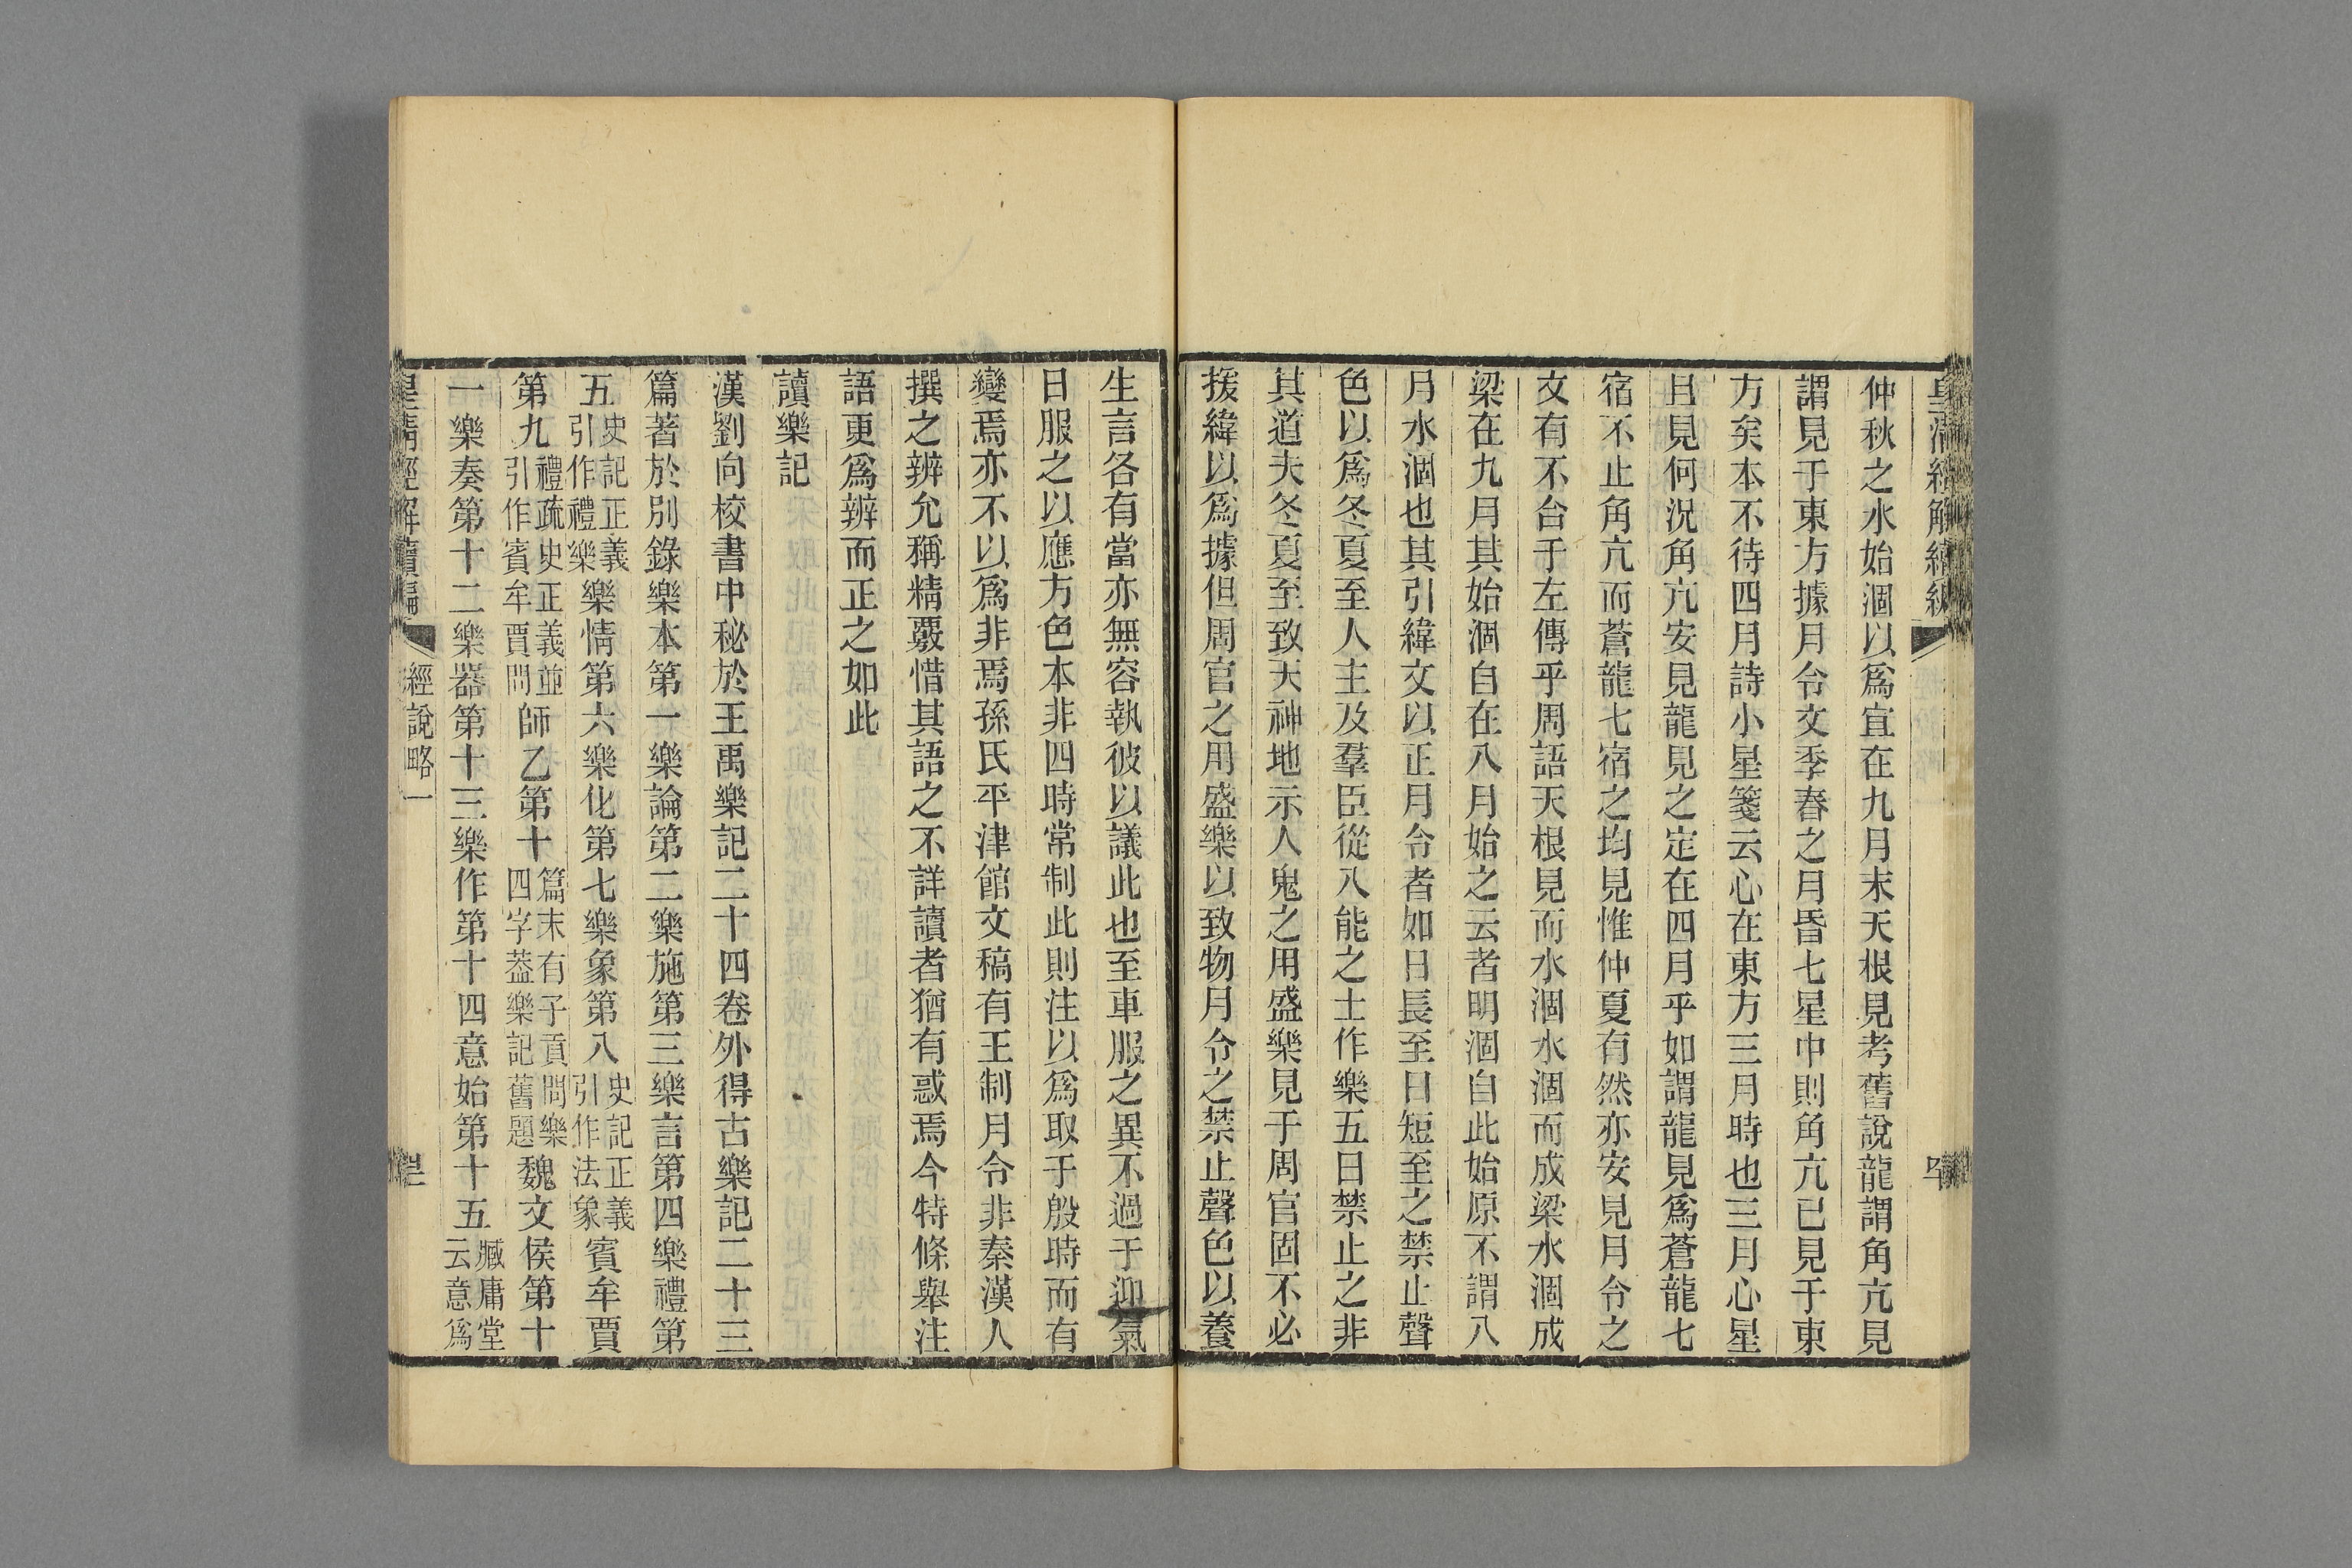 皇清經解續編
仲秋之水始涸以爲宜在九月末天根見考舊說龍謂角亢見
謂見于東方據月令文季春之月昏七星中則角亢已見于東
方矣本不待四月詩小星箋云心在東方三月時也三月心星
且見何況角亢安見龍見之定在四月乎如謂龍見爲蒼龍七
宿不止角亢而蒼龍七宿之均見惟仲夏有然亦安見月令之
文有不合于左傳乎周語天根見而水涸水涸而成梁水涸成
梁在九月其始涸自在八月始之云者明涸自此始原不謂八
月水涸也其引緯文以正月令者如日長至日短至之禁止聲
色以爲冬夏至人主及羣臣從八能之士作樂五日禁止之非
其道夫冬夏至致天神地示人鬼之用盛樂見于周官固不必
援緯以爲據但周官之用盛樂以致物月令之禁止聲色以養
生言各有當亦無容執彼以議此也至車服之異不過于迎氣
日服之以應方色本非四時常制此則注以爲取于殷時而有
變焉亦不以爲非焉孫氏平津館文稿有王制月令非秦漢人
撰之辨允稱精覈惜其語之不詳讀者猶有惑焉今特條舉注
語更爲辨而正之如此
讀樂記
漢劉向校書中秘於王禹樂記二十四卷外得古樂記二十三
篇著於別錄樂本第一樂論第二樂施第三樂言第四樂禮第
五史記正義引作禮樂樂情第六樂化第七樂象第八史記正義引作法象賓牟賈
第九禮疏史正義並引作賓牟賈問師乙第十篇末有子貢問樂四字葢樂記舊題魏文侯第十
一樂奏第十二樂器第十三樂作第十四意始第十五臧庸堂云意爲
皇清經解續編 經說略一